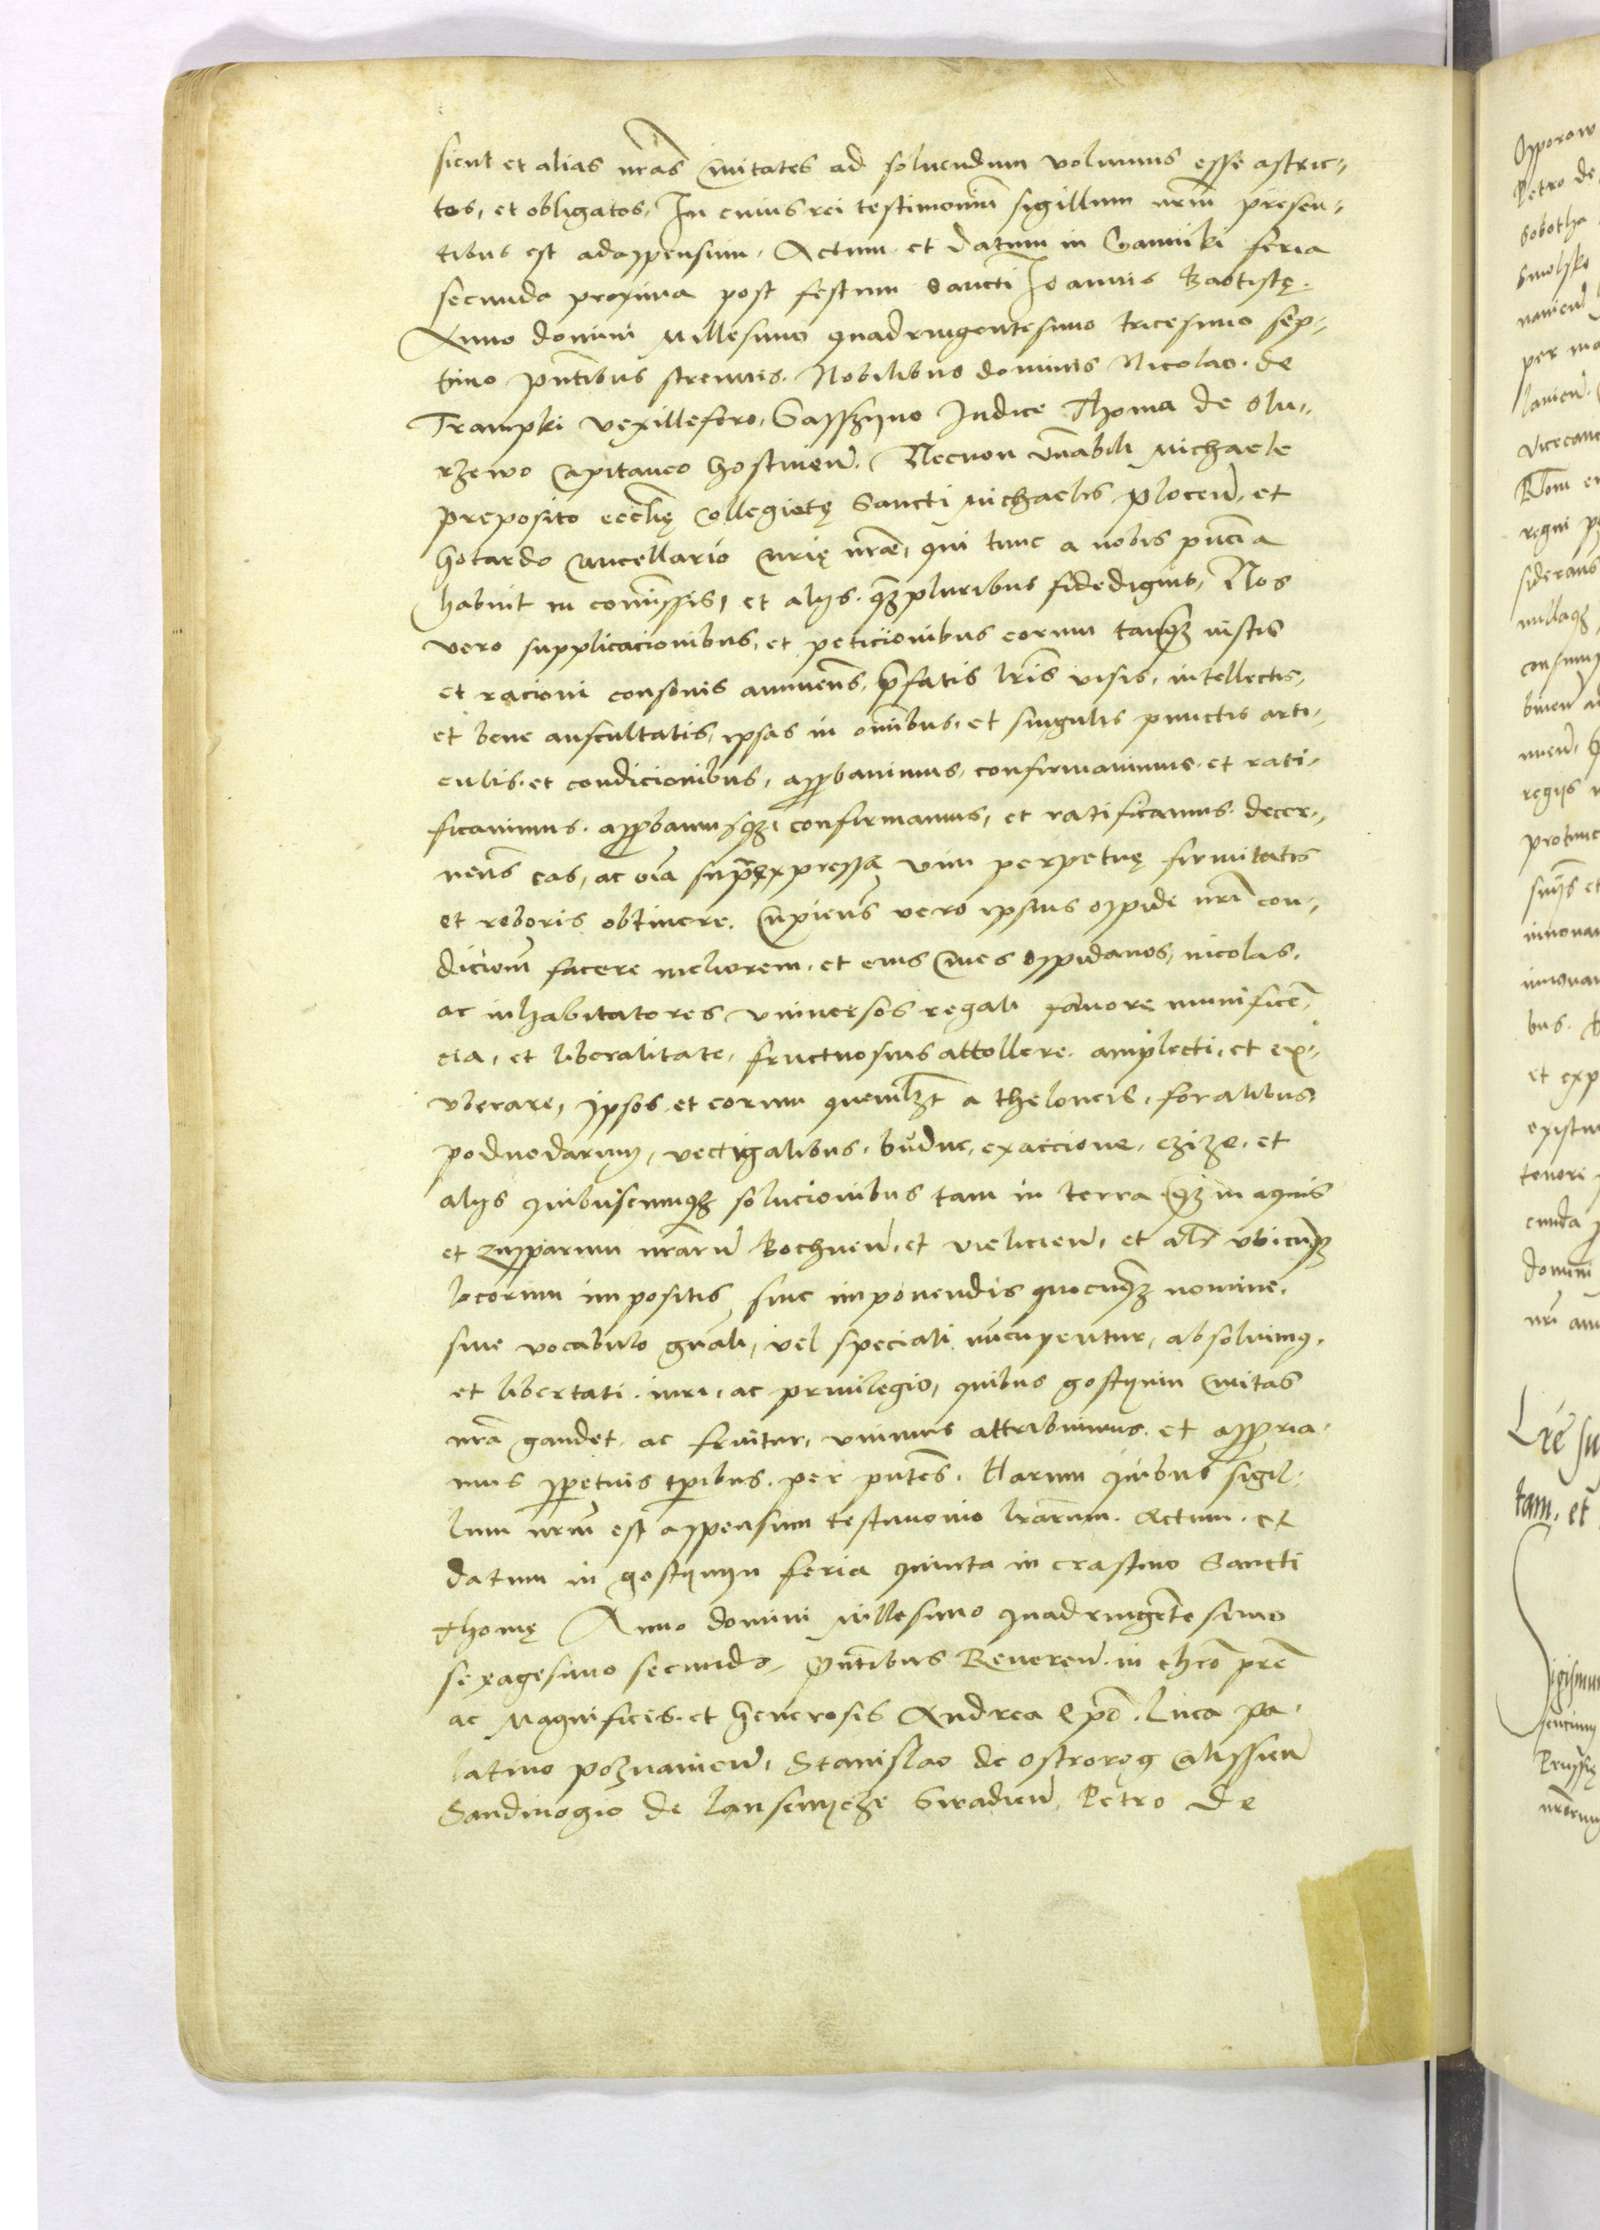 sicut et alias nr̃as Ciuitates ad soluendum volumus esse astric-
tos, et obligatos, In cuius rei testimoniũ sigillum nrm̃ presen-
tibus est adappensum. Actum et datum in Gamiki feria
secunda proxima post festum Sancti Joannis Baptistę.
Anno domini Millesimo quadringentesimo tricesimo sep-
timo pñtibus strenuis. Nobilibus dominis Nicolao. de
Trampki vexillefero, Sasszyno Judice Thoma de Slu-
rzewo Capitaneo Gostinen̄. Necnon Vñabili Michaele
preposito eccl̃ię Collegiatę Sancti Michaelis plocen̄. et
Gotardo Cancellario Curię nr̃ae, qui tunc a nobis pñcia
habuit in com̃issis, et alijs. q̃zpluribus fidedignis, Nos
vero supplicacionibus, et peticionibus eorum tanq̃z iustis
et racioni consonis annuen̄s, p̃fatis lr̃is visis, intellectis,
et bene auscultatis, ipsas in om̃ibus, et singulis punctis arti-
culis. et condicionibus, approbauimus, confirmauimus. et rati-
ficauimus. approbamusq̃z, confirmamus, et ratificamus. decer-
nen̄s eas, ac oĩa sup̃expressa vim perpetuę firmitatis
et roboris obtinere. Cupien̄s vero ipsius oppide nr̃i con-
dicionẽ facere meliorem. et eius Ciues oppidanos, incolas.
ac inhabitatores vniuersos regali fauore munificẽ-
cia, et liberalitate, fructuosius attollere. amplecti, et ex-
vberare, Ipsos. et eorum quemlz̃t a theloneis, foralibus
podwodarum, vectigalibus, budne, exaccione, czize. et
alijs quibuscumq̃z solucionibus tam in terra q̃z in aquis
et Zupparum nr̃arũ Bochnen̄. et vielicien̄, et al̃r vbicũq̃z
locorum impositis, siue imponendis quocumq̃z nomine.
siue vocabulo gñali, vel speciali nũcupentur, absoluimq,
et libertati. iuri, ac priuilegio, quibus gostynin Ciuitas
nr̃a gaudet. ac fruitur, vnimus attribuimus. et appria-
mus ppetuis tp̃ribus. per pñtes. Harum quibus sigil-
lum nrm̃ est appensum testimonio lr̃arum. Actum. et
datum in gostynyn feria quinta in crastino Sancti
Thomę Anno domini Millesimo quadringẽtesimo
sexagesimo secundo, Pñtibus Reueren̄. in chr̃o pr̃e
ac Magnificis. et Generosis Andrea Ep̃o. Luca pa-
latino poznanien̄, Stanislao de ostrorog Calissien̄
Sandiuogio de lansenycze Siradien̄. Petro de
Opporow
Petro de
Sobotha
Smolsko
nanien̄
per ma
lanien̄.
Vicecanc
regni
siderans
nullaq̃z
consump
regijs
protunc
et exp
existu
tenore
domini
nr̃i
Lr̃e su
tam. et
igismun
Prussię